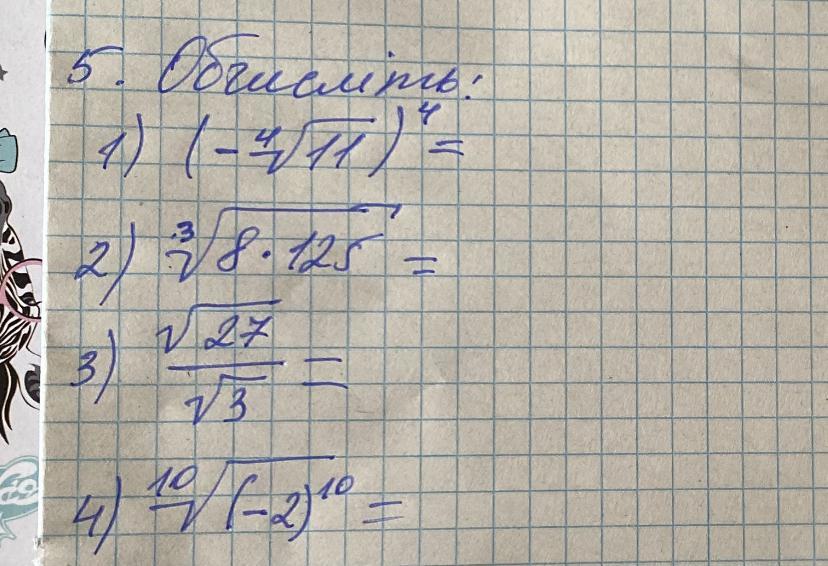 5. Обчисліть:
1) (-⁴√11)⁴=
2) ³√8·125 =
3) √27/√3 =
4) ¹⁰√(-2)¹⁰ =